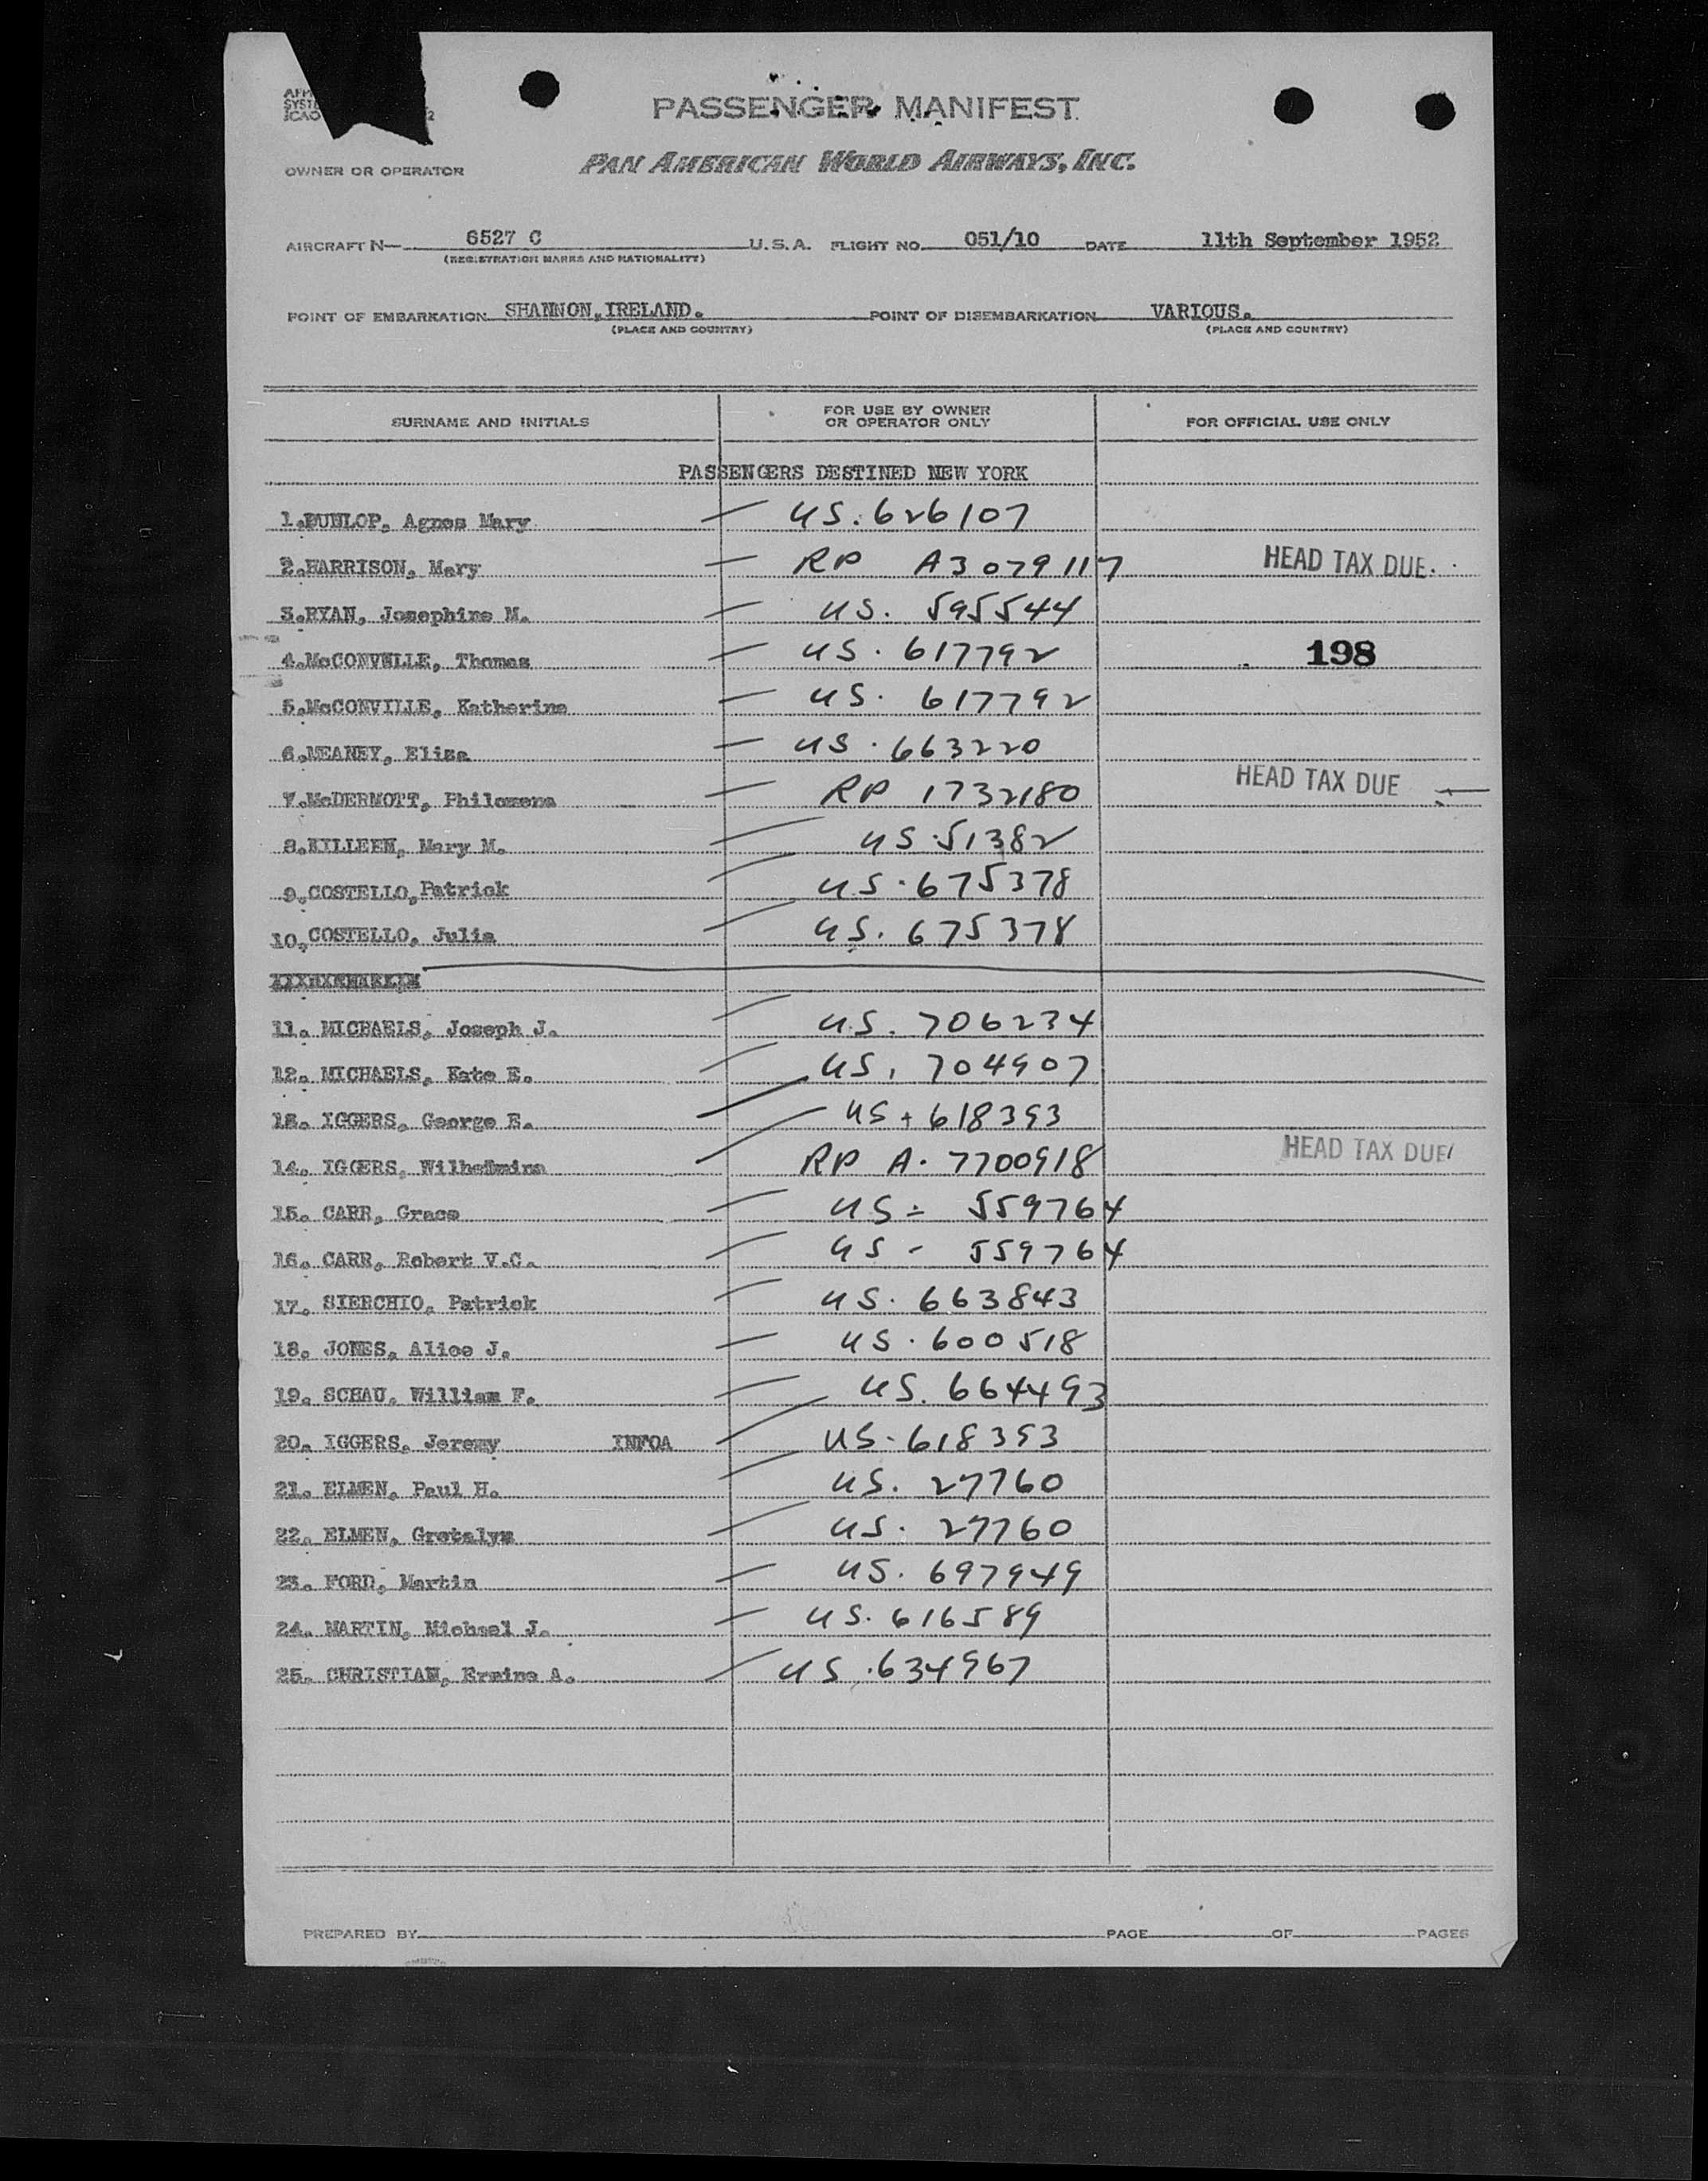 PASSENGER MANIFEST
OWNER OR OPERATOR PAN AMERICAN WORLD AIRWAYS, INC.
AIRCRAFT N— 6527 C U.S.A. FLIGHT NO. 051/10 DATE 11th September 1952
(REGISTRATION MARKS AND NATIONALITY)
POINT OF EMBARKATION SHANNON, IRELAND. POINT OF DISEMBARKATION VARIOUS.
(PLACE AND COUNTRY) (PLACE AND COUNTRY)
SURNAME AND INITIALS FOR USE BY OWNER OR OPERATOR ONLY FOR OFFICIAL USE ONLY
PASSENGERS DESTINED NEW YORK
1. DUNLOP, Agnes Mary — US. 626107
2. HARRISON, Mary — RP A3079117 HEAD TAX DUE
3. RYAN, Josephine M. — US. 595544
4. McCONVELLE, Thomas — US. 617792 198
5. McCONVILLE, Katherine — US. 617792
6. MEANEY, Eliza — US. 663220
7. McDERMOTT, Philomena — RP 1732180 HEAD TAX DUE
8. KILLEEN, Mary M. — US. 51382
9. COSTELLO, Patrick — US. 675378
10. COSTELLO, Julia — US. 675378
11. MICHAELS, Joseph J. — US. 706234
12. MICHAELS, Kate E. — US. 704907
13. IGGERS, George E. — US. 618393
14. IGGERS, Wilhelmina — RP A. 7700918 HEAD TAX DUE
15. CARR, Grace — US - 559764
16. CARR, Robert V.C. — US - 559764
17. SIERCHIO, Patrick — US. 663843
18. JONES, Alice J. — US. 600518
19. SCHAU, William F. — US. 664493
20. IGGERS, Jeremy INFOA — US. 618393
21. ELMEN, Paul H. — US. 27760
22. ELMEN, Gretalyn — US. 27760
23. FORD, Martin — US. 697949
24. MARTIN, Michael J. — US. 616589
25. CHRISTIAN, Ermine A. — US. 634967
PREPARED BY PAGE OF PAGES